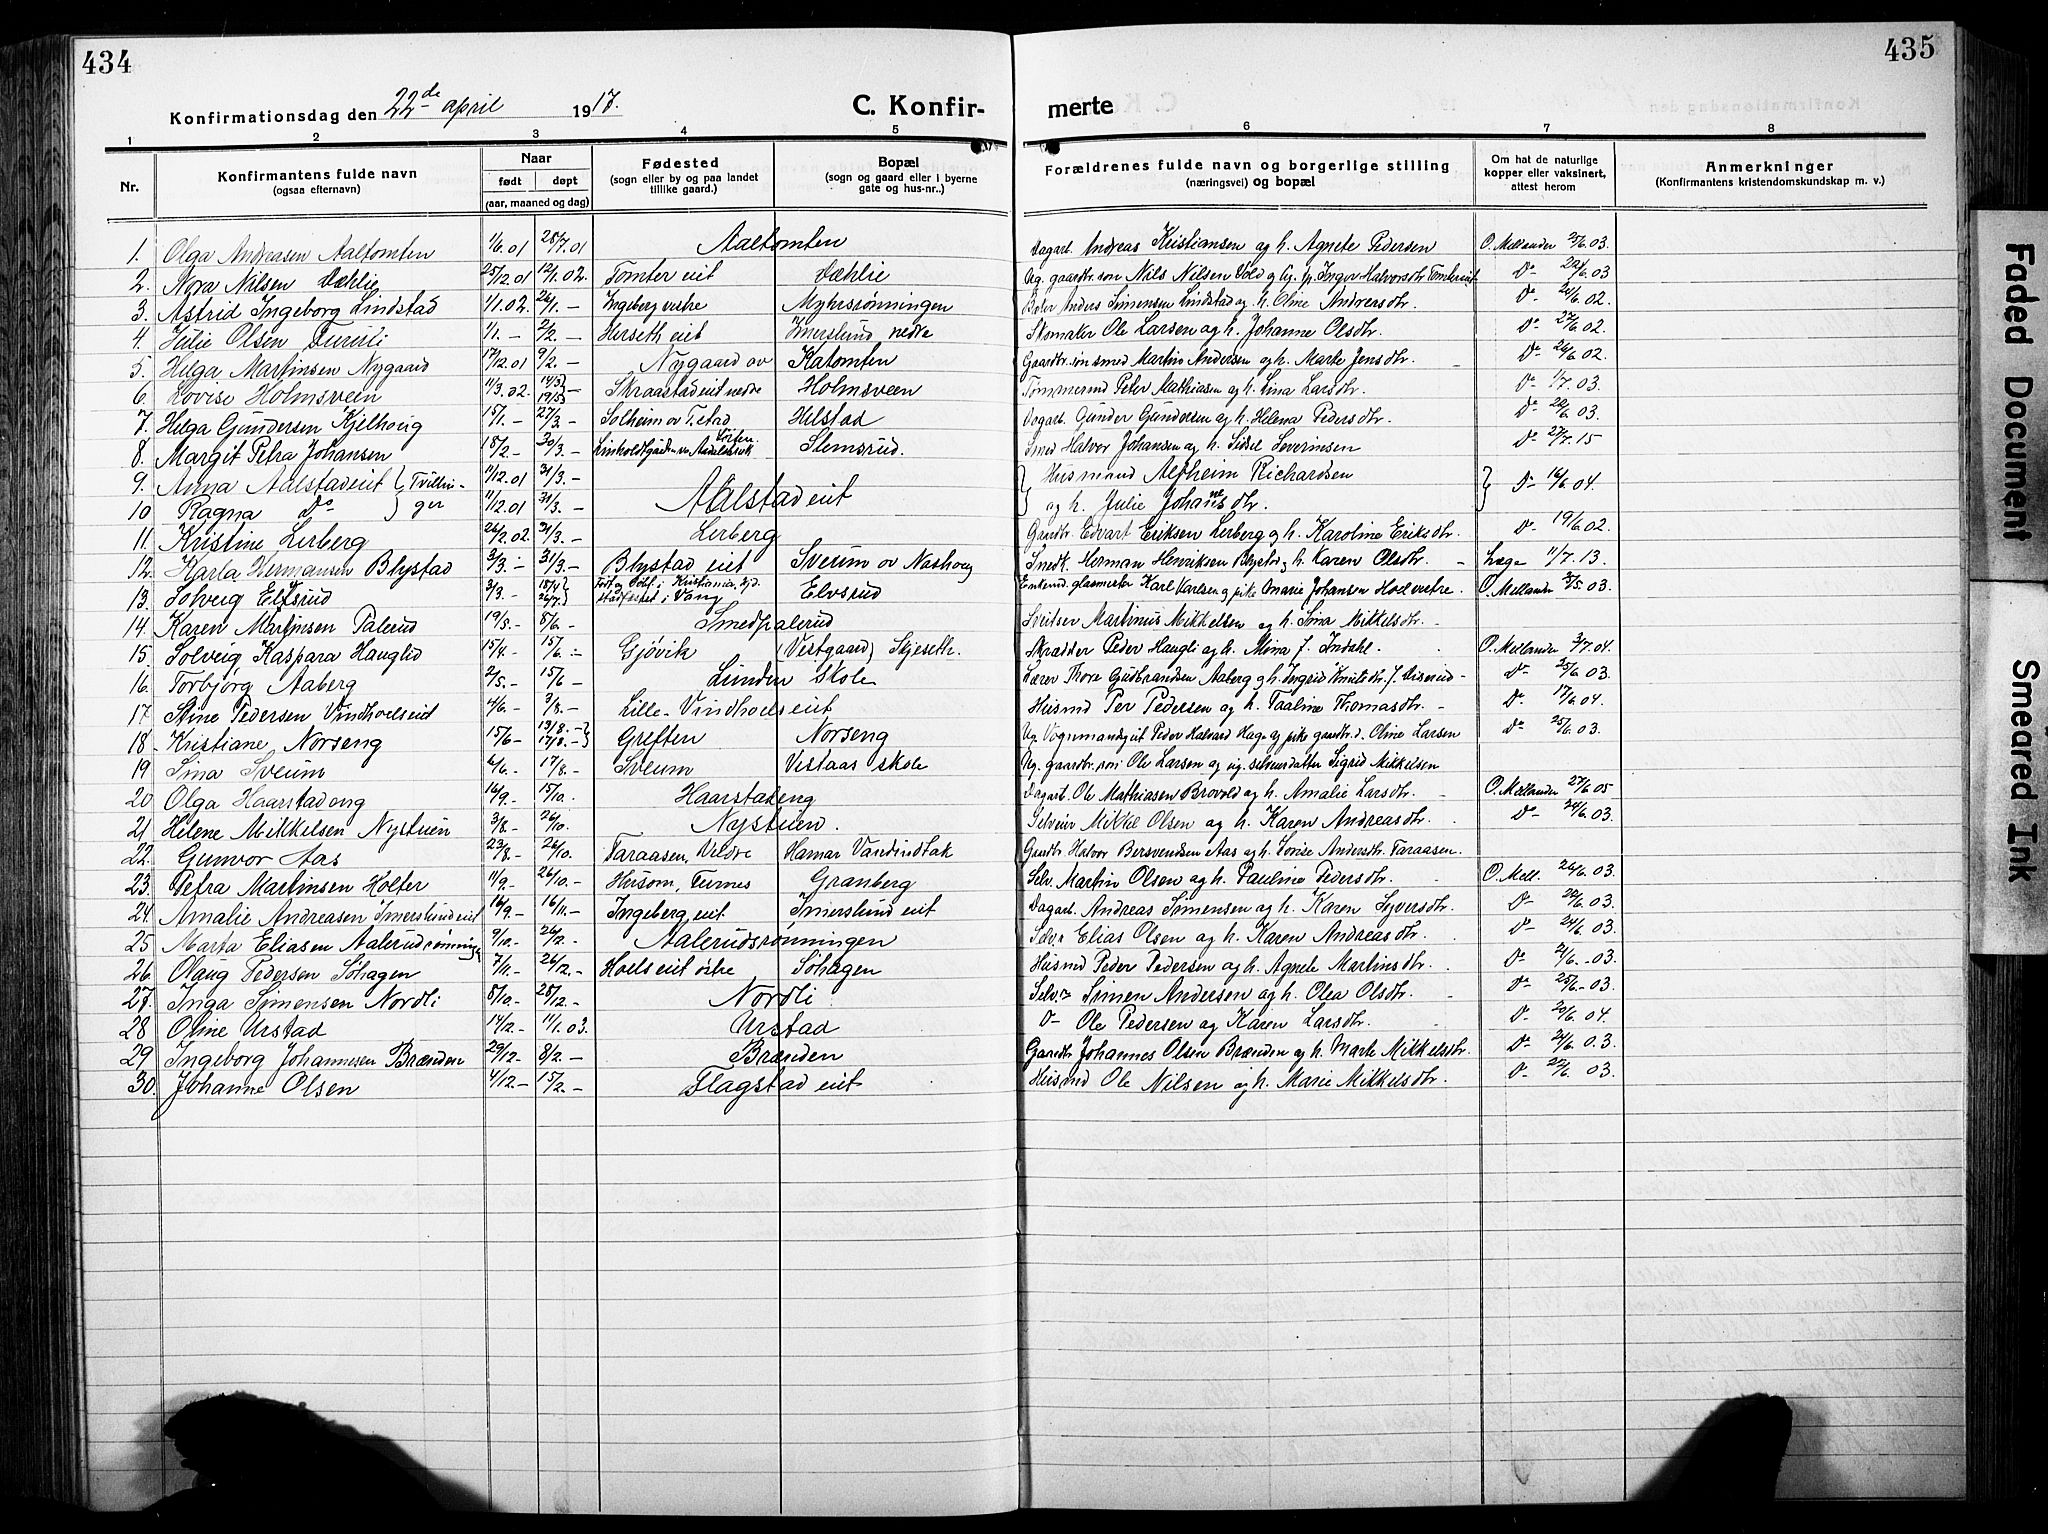 434
435
Konfirmationsdag den 22de april 1917.
C. Konfir-
merte
1 2 3 4 5 6 7 8
Nr.
Konfirmantens fulde navn
(ogsaa efternavn)
Naar
født døpt
(aar, maaned og dag)
Fødested
(sogn eller by og paa landet
tillike gaard.)
Bopæl
(sogn og gaard eller i byerne
gate og hus-nr..)
Forældrenes fulde navn og borgerlige stilling
(næringsvei) og bopæl
Om hat de naturlige
kopper eller vaksinert,
attest herom
Anmerkninger
(Konfirmantens kristendomskundskap m. v.)
1. Olga Andreasen Aaltomten 1/6.01 28/7.01 Aaltomten Dagarb. Andreas Kristiansen og h. Agnete Pedersen O. Mellander 25/6.03.
2. Nora Nilsen Dæhlie 25/12.01 12/1.02. Tomter eit Dæhlie Ug. gaardbr.søn Nils Nilsen Vold og D° 03
3. Astrid Ingeborg Lindstad 1/1.02. 26/1.— Ingeberg vestre Myhrsrønningen Anders Simensen Lindstad og h. Oline Andreasdtr. D° 24/6.02.
4. Julie Olsen Furuli 1/1.— 2/2.— Herseth eit Imerslund nedre Skomaker Ole Larsen og h. Johanne Olsdtr. D° 27/6.02.
5. Helga Martinsen Nygaard 17/12.01 9/2.— Nygaard ov Katomten Gaardbr.søn smed Martin Andersen og h. Marte Jensdtr. D° 26/6.02.
6. Lovise Holmsveen 11/3.02. 14/3 19/5 — Skraastadeit nedre Holmsveen Tømmermd Peter Mathiasen og h. Lina Larsdtr. D° 1/7.03.
7. Helga Gundersen Kjelhoug 15/1.— 27/3.— Solheim ov Helstad Dagarb. Gunder Gundersen og h. Helena Pedersdtr. D° 03.
8. Margit Petra Johansen 18/2.— 30/3.— Løiten. Slemsrud. Smed Halvor Johansen og h. Sidsel Severinsen D° 27/7.15
9. Anna Aalstadeit { Tvillin- 11/12.01 31/3.— Husmand Alfheim Richardsen D° 16/6.04.
10 Ragna D° } ger 11/12.01 31/3.— Aalstadeit og h. Julie Johannesdtr.
11. Kristine Lerberg 26/2.02. 31/3.— Lerberg Gaardbr. Edvart Eriksen Lerberg og h. Karoline Eriksdtr. D° 19/6.02
12. Karla Hermansen Blystad 3/3.— 31/3.— Blystad eit Sveum ov Nashoug Snedk. Herman Henriksen Blystad og h. Karen Olsdtr. Læge 11/7.13.
13. Solveig Elfsrud 3/3.— 15/4 26/7. Født og døbt i Kristiania. Hjd. stadfestet i Vang Elvsrud Enkemd. glasmester Karl Karlsen og pike Marie Johansen Hoelvestre. O. Mellander 5.03.
14. Karen Martinsen Palerud 19/5.— 8/6.— Smedpalerud Sveitser Martinus Mikkelsen og h. Sina Mikkelsdtr.
15. Solveig Kaspara Hauglid 15/4.— 15/6.— Gjøvik (Vestgaard) Skjeseth. Skrædder Peder Haugli og h. Mina J. Indahl. O. Mellander 3/7.04.
16. Torbjørg Aaberg 2/5.— 15/6— Lunden Skole Lærer Thore Gudbrandsen Aaberg og h. Ingrid D° 25/6 03.
17. Stine Pedersen Vindhoelseit 14/6.— 3/8.— Lille-Vindhoelseit Husmd Per Pedersen og h. Taaline Thomasdtr. D° 17/6.04.
18- Kristiane Norseng 15/6— 13/8.— 17/8.— Greften Norseng Ug. Peder Halvard Hage og pike gaardbr.d. Oline Larsen D° 25/6.03.
19 Sina Sveum 6/6.— 17/8.— Sveum Vestaas skole Ug. gaardbr.søn Ole Larsen og ug. selveierdatter Sigrid Mikkelsen
20 Olga Haarstadeng 16/9.— 15/10.— Haarstadeng Dagarb. Ole Mathiasen Brovold og h. Amalie Larsdtr. O. Mellander 27/6 05
21 Helene Mikkelsen Nystuen 3/8.— 26/10. Nystuen. Selveier Mikkel Olsen og h. Karen Andreasdtr. D° 24/6.03.
22. Gunvor Aas 23/8.— 26/10. Faraasen, Veldre Hamar Vandindtak Gaardbr Halvor Bersvendsen Aas og h. Lovise Andersdtr. Faraasen.
23. Petra Martinsen Holter 11/9.— 26/10.— Husom, Furnes Granberg Selv. Martin Olsen og h. Pauline Pedersdtr. O. Mell. 26/6.03.
24. Amalie Andreasen Imerslundeit 16/9.— 16/11.— Ingeberg eit Imerslund eit Dagarb. Andreas Simensen og h. Karen Syversdtr. D° 03.
25 Marta Eliasen Aalerudsrønningen 9/10.— 26/12.— Aalerudsrønningen Selv.r Elias Olsen og h. Karen Andreasdtr. D° 24/6.03.
26. Olaug Pedersen Søhagen 7/11.— 26/12.— Hoelseit østre Søhagen Husmd Peder Pedersen og h. Agnete Martinsdtr. D° 24/6.—03.
27. Inga Simensen Nordli 8/10.— 28/12.— Nordli Selv.r Simen Andersen og h. Olea Olsdtr. D° 25/6.—03.
28 Oline Urstad 14/12.— 11/1.03. Urstad D— Ole Pedersen og Karen Larsdtr. D° 20/6.04.
29 Ingeborg Johannesen Brænden 29/12.— 8/2.— Brænden Gaardbr Johannes Olsen Brænden og h. Marte Mikkelsdtr. D° 24/6 03.
30. Johanne Olsen 4/12.— 15/2.— Flagstad eit Husmd Ole Nilsen og h. Marie Mikkelsdtr. D° 03.
Faded Document
Smeared Ink